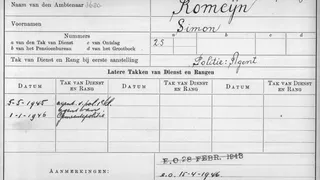 Naam van den Ambtenaar 3620 Romeijn
Voornamen Simon
Nummers
a van den Tak van Dienst c van Ontslag
b van het Pensioenbureau d van het Grootboek
25
Tak van Dienst en Rang bij eerste aanstelling Politie: Agent
Latere Takken van Dienst en Rangen
DATUM TAK VAN DIENST EN RANG DATUM TAK VAN DIENST EN RANG DATUM TAK VAN DIENST EN RANG
5-5-1945 agent v. politie
1-1-1946 agent van
Gemeentepolitie
E.O 28 FEBR. 1946
AANMERKINGEN: E.O. 15-4-1946